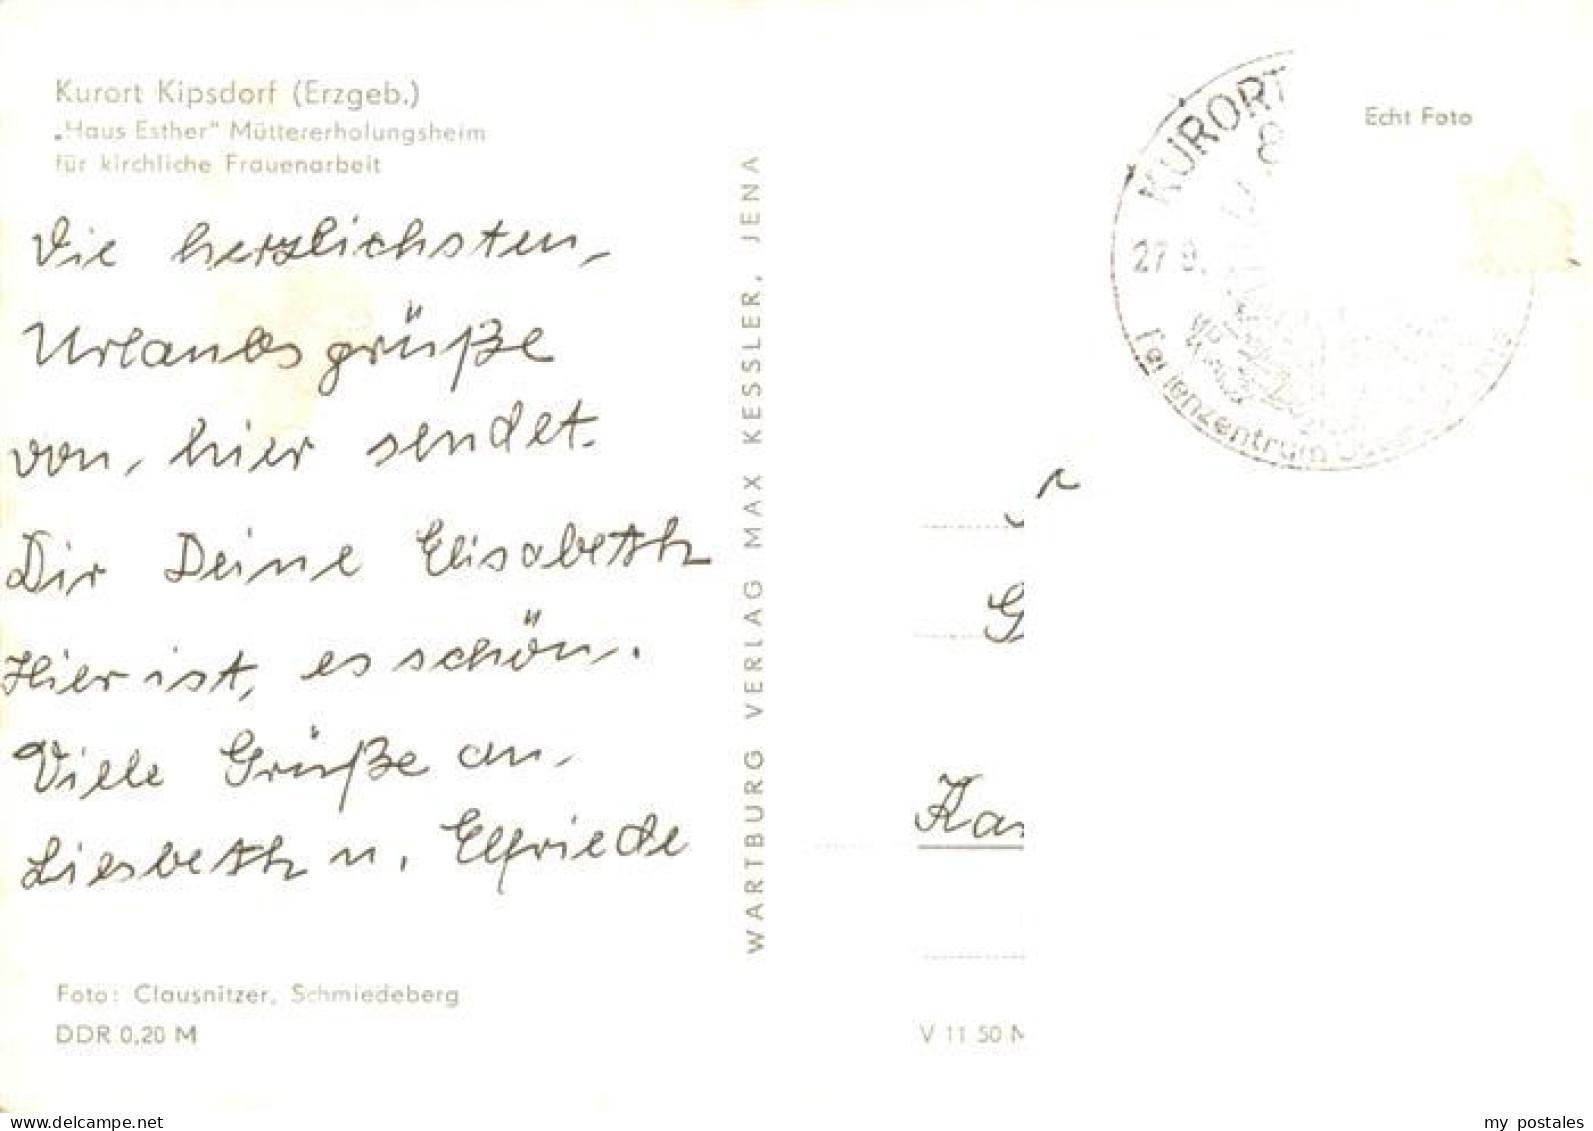 Kurort Kipsdorf (Erzgeb.)
„Haus Esther" Müttererholungsheim
für kirchliche Frauenarbeit
Die herzlichsten
Urlaubsgrüße
von hier sendet
Dir Deine Elisabeth
Hier ist, es schön.
Viele Grüße an
Liesbeth u. Elfriede
Foto: Clausnitzer, Schmiedeberg
DDR 0,20 M
WARTBURG VERLAG MAX KESSLER, JENA
Echt Foto
KURORT
8
27.9.
Ferienzentrum
G
Kas
V 11 50
delcampe.net
my_postales